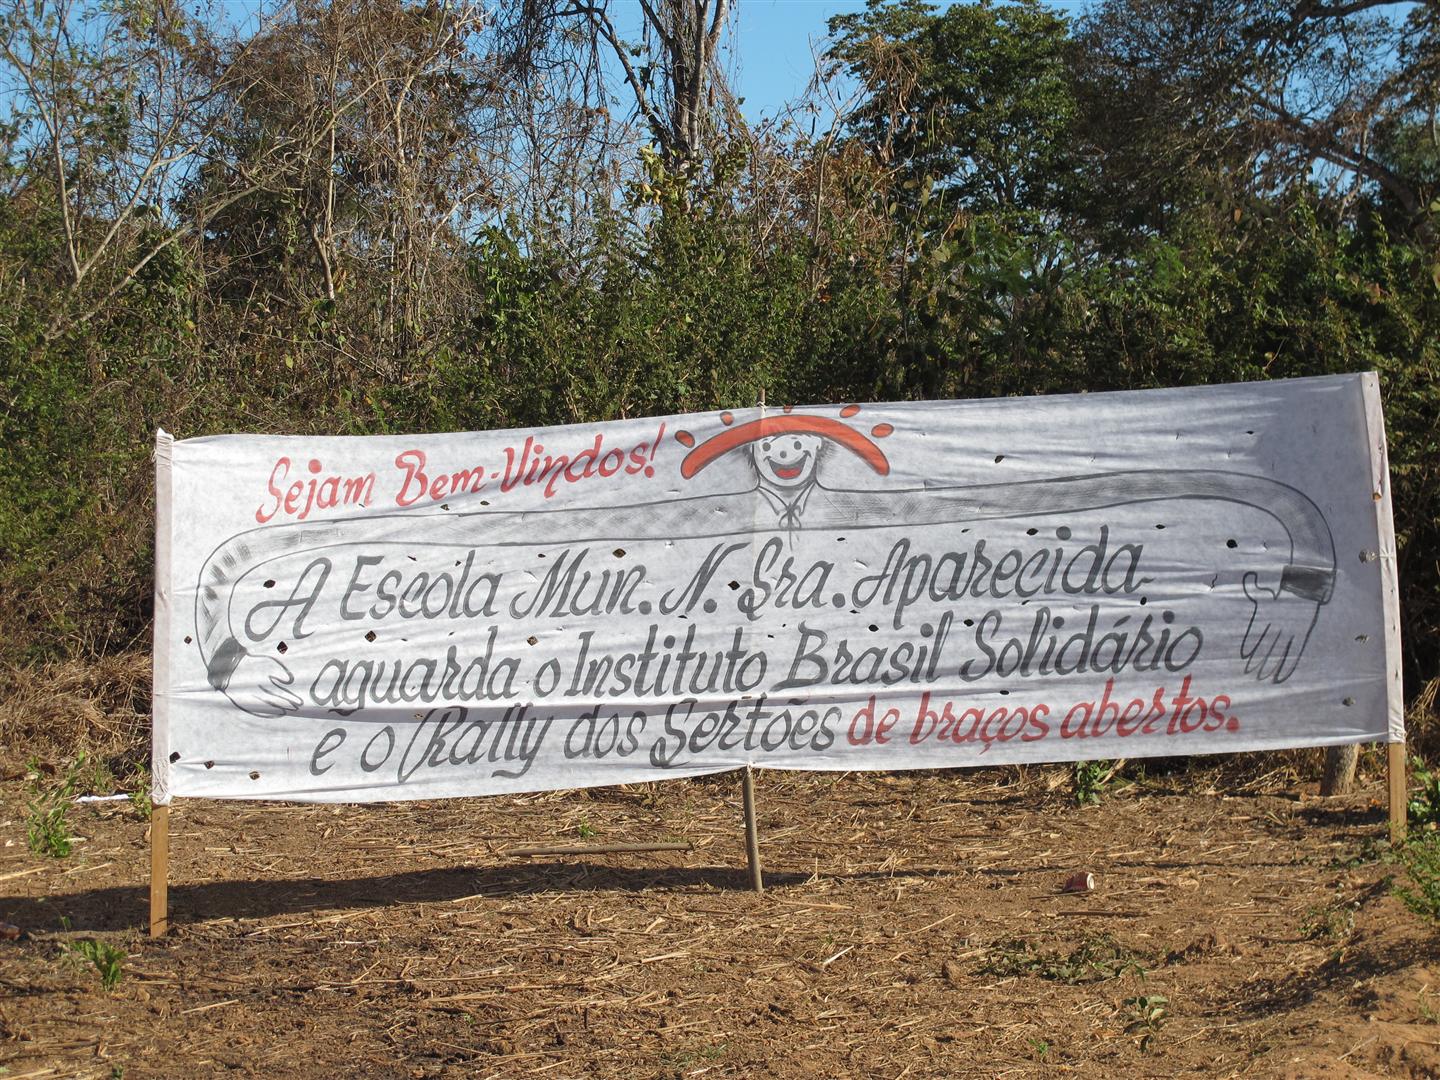 Sejam Bem-Vindos!
A Escola Mun. N. Sra. Aparecida
aguarda o Instituto Brasil Solidário
e o Rally dos Sertões de braços abertos.